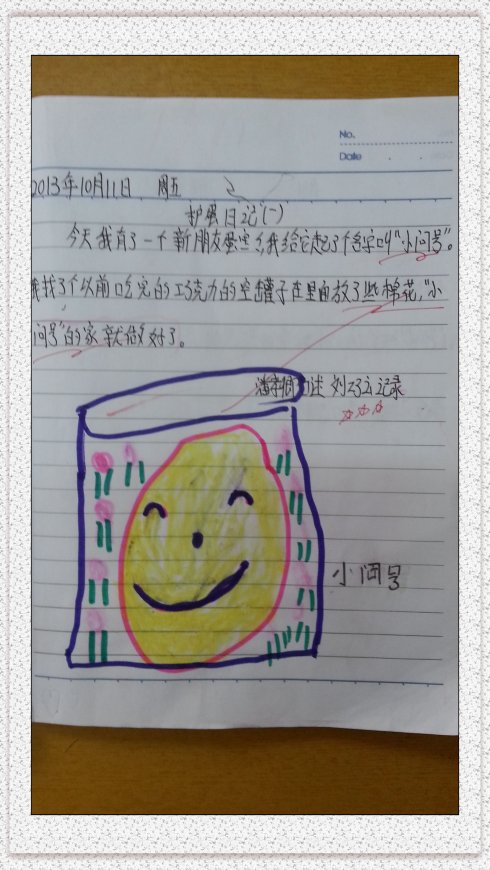 No.
Date
2013年10月11日 周五
护蛋日记(一)
今天我有了一个新朋友蛋宝宝,我给它起了个名字叫"小问号"。
我找了个以前吃完的巧克力的空罐子在里面放了些棉花,"小
问号"的家就做好了。
述 刘 记录
小问号